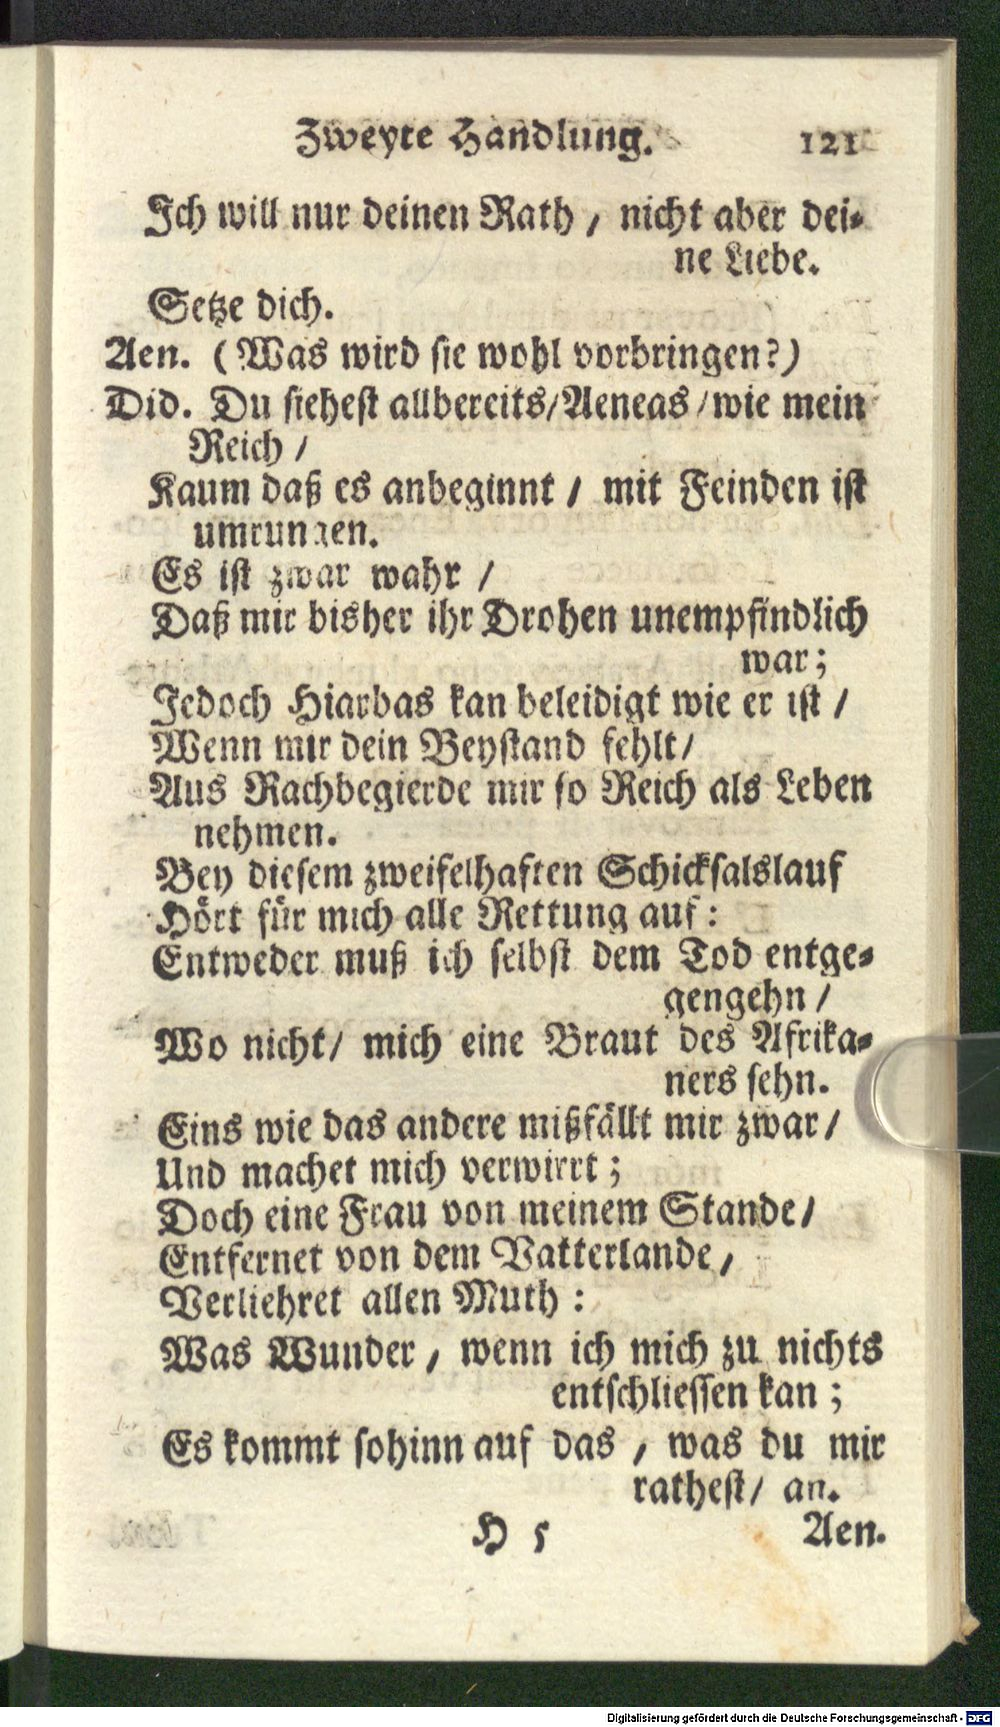 Zweyte Handlung. 121
Ich will nur deinen Rath / nicht aber dei-
ne Liebe.
Setze dich.
Aen. (Was wird sie wohl vorbringen?)
Did. Du siehest allbereits/Aeneas/wie mein
Reich /
Kaum daß es anbeginnt / mit Feinden ist
umrungen.
Es ist zwar wahr /
Daß mir bisher ihr Drohen unempfindlich
war;
Jedoch Hiarbas kan beleidigt wie er ist /
Wenn mir dein Beystand fehlt/
Aus Rachbegierde mir so Reich als Leben
nehmen.
Bey diesem zweifelhaften Schicksalslauf
Hört für mich alle Rettung auf:
Entweder muß ich selbst dem Tod entge-
gengehn /
Wo nicht/ mich eine Braut des Afrika-
ners sehn.
Eins wie das andere mißfällt mir zwar/
Und machet mich verwirrt;
Doch eine Frau von meinem Stande/
Entfernet von dem Vatterlande,
Verliehret allen Muth:
Was Wunder, wenn ich mich zu nichts
entschliessen kan;
Es kommt sohinn auf das, was du mir
rathest/ an.
H 5 Aen.
Digitalisierung gefördert durch die Deutsche Forschungsgemeinschaft - DFG